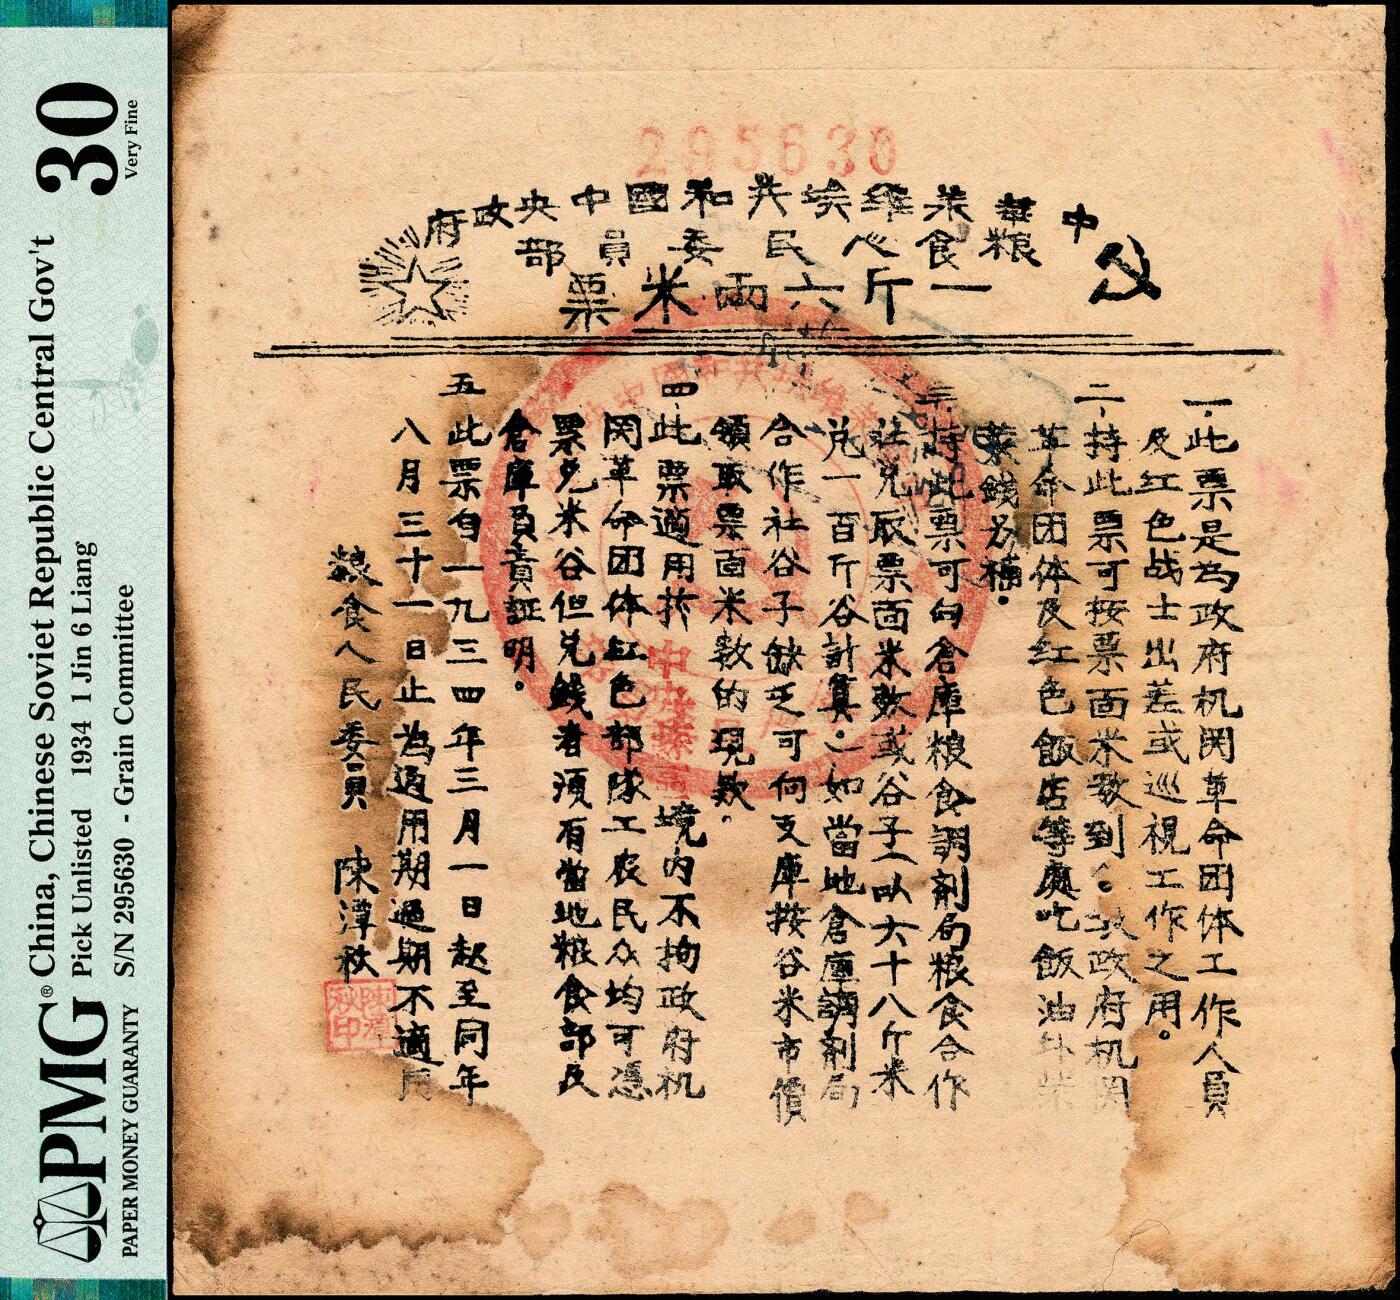 PMG® China, Chinese Soviet Republic Central Gov't
Pick Unlisted 1934 1 Jin 6 Liang
PAPER MONEY GUARANTY S/N 295630 - Grain Committee
30
Very Fine
295630
中華蘇維埃共和國中央政府
粮食人民委員部
一斤六兩米票
一.此票是為政府机関革命团体工作人員
及红色战士出差或巡視工作之用。
二.持此票可按票面米数到 政府机関
革命团体及红色飯店等處吃飯油
菜錢另補.
三.持此票可向倉庫粮食調剂局粮食合作
社兑取票面米数或谷子(以六十八斤米
兑一百斤谷計算.)如當地倉庫調剂局
合作社谷子缺乏可向支庫按谷米市價
領取票面米数的現款.
四此票適用扵中央蘇區境内不拘政府机
関革命团体红色部隊工农民众均可憑
票兑米谷但兑錢者須有當地粮食部及
倉庫員責証明.
五此票自一九三四年三月一日起至同年
八月三十一日止為適用期過期不適用
粮食人民委員 陳潭秋
陳潭秋印